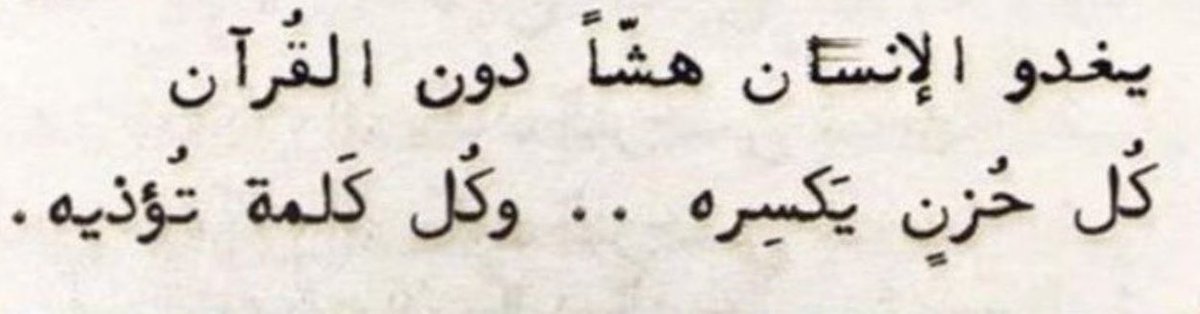 يغدو الإنسان هشّاً دون القُرآن
كُل حُزنٍ يَكسِره .. وكُل كَلمة تُؤذيه.